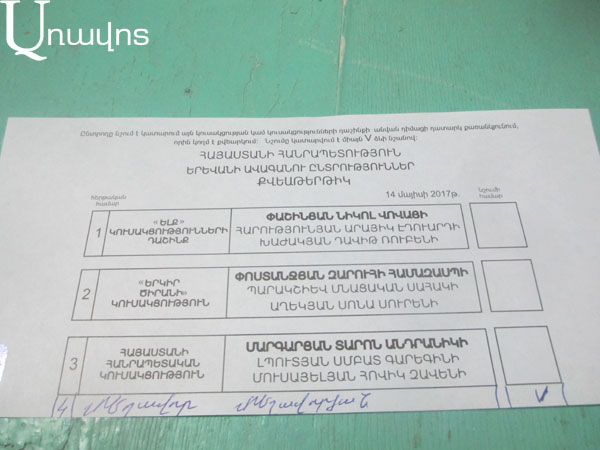 Առավոտ
Ընտրողը նշում է կատարում այն կուսակցության կամ կուսակցությունների դաշինքի անվան դիմացի դատարկ քառանկյունում,
որին կողմ է քվեարկում: Նշումը կատարվում է միայն V ձևի նշանով:
ՀԱՅԱՍՏԱՆԻ ՀԱՆՐԱՊԵՏՈՒԹՅՈՒՆ
ԵՐԵՎԱՆԻ ԱՎԱԳԱՆՈՒ ԸՆՏՐՈՒԹՅՈՒՆՆԵՐ
ՔՎԵԱԹԵՐԹԻԿ
հերթական
համար
14 մայիսի 2017թ.
Նշումի
համար
1
«ԵԼՔ»
ԿՈՒՍԱԿՑՈՒԹՅՈՒՆՆԵՐԻ
ԴԱՇԻՆՔ
ՓԱՇԻՆՅԱՆ ՆԻԿՈԼ ՎՈՎԱՅԻ
ՀԱՐՈՒԹՅՈՒՆՅԱՆ ԱՐԱՅԻԿ ԷԴՈՒԱՐԴԻ
ԽԱԺԱԿՅԱՆ ԴԱՎԻԹ ՌՈՒԲԵՆԻ
2
«ԵՐԿԻՐ
ԾԻՐԱՆԻ»
ԿՈՒՍԱԿՑՈՒԹՅՈՒՆ
ՓՈՍՏԱՆՋՅԱՆ ԶԱՐՈՒՀԻ ՀԱՄԱԶԱՍՊԻ
ՊԱՐԱԿՇԻԵՎ ՄՆԱՑԱԿԱՆ ՍԱՀԱԿԻ
ԱՂԵԿՅԱՆ ՍՈՆԱ ՍՈՒՐԵՆԻ
3
ՀԱՅԱՍՏԱՆԻ
ՀԱՆՐԱՊԵՏԱԿԱՆ
ԿՈՒՍԱԿՑՈՒԹՅՈՒՆ
ՄԱՐԳԱՐՅԱՆ ՏԱՐՈՆ ԱՆԴՐԱՆԻԿԻ
ԼՊՈՒՏՅԱՆ ՍՄԲԱՏ ԳԱՐԵԳԻՆԻ
ՄՈՒՍԱՅԵԼՅԱՆ ՀՈՎԻԿ ԶԱՎԵՆԻ
4
V